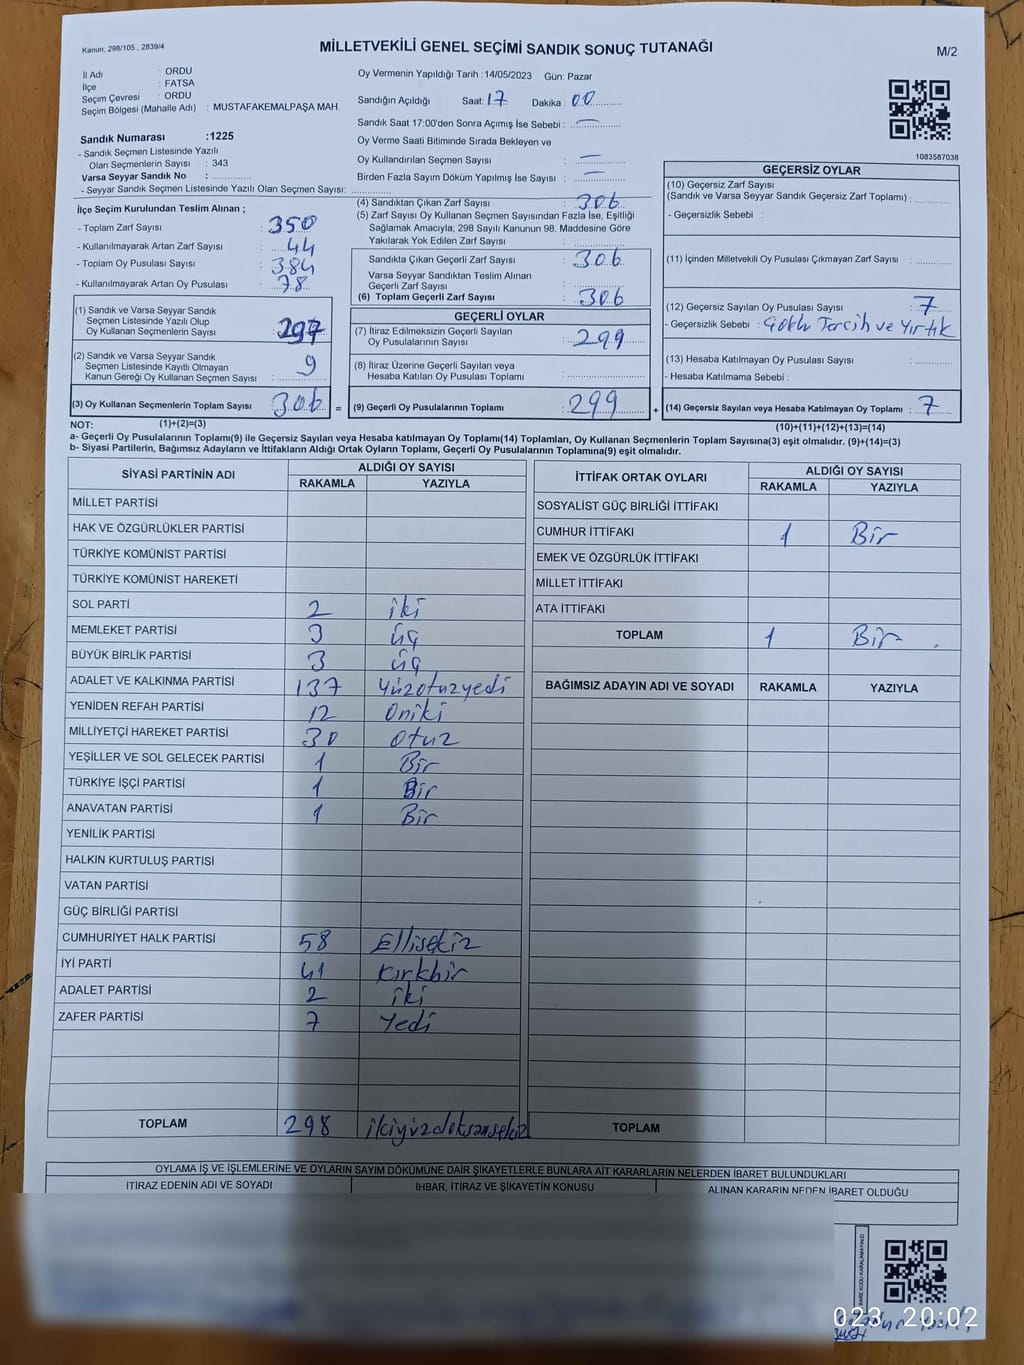 Kanun; 298/105 , 2839/4
MİLLETVEKİLİ GENEL SEÇİMİ SANDIK SONUÇ TUTANAĞI
M/2
İl Adı : ORDU
İlçe : FATSA
Seçim Çevresi : ORDU
Seçim Bölgesi (Mahalle Adı) : MUSTAFAKEMALPAŞA MAH.
Oy Vermenin Yapıldığı Tarih :14/05/2023 Gün: Pazar
Sandığın Açıldığı Saat: 17 Dakika : 00
Sandık Saat 17:00'den Sonra Açımış İse Sebebi : —
Oy Verme Saati Bitiminde Sırada Bekleyen ve
Oy Kullandırılan Seçmen Sayısı : —
Birden Fazla Sayım Döküm Yapılmış İse Sayısı : —
1083587038
Sandık Numarası :1225
- Sandık Seçmen Listesinde Yazılı
Olan Seçmenlerin Sayısı : 343
Varsa Seyyar Sandık No :
- Seyyar Sandık Seçmen Listesinde Yazılı Olan Seçmen Sayısı:
İlçe Seçim Kurulundan Teslim Alınan ;
- Toplam Zarf Sayısı : 350
- Kullanılmayarak Artan Zarf Sayısı : 44
- Toplam Oy Pusulası Sayısı : 384
- Kullanılmayarak Artan Oy Pusulası : 78
(1) Sandık ve Varsa Seyyar Sandık
Seçmen Listesinde Yazılı Olup
Oy Kullanan Seçmenlerin Sayısı : 297
(2) Sandık ve Varsa Seyyar Sandık
Seçmen Listesinde Kayıtlı Olmayan
Kanun Gereği Oy Kullanan Seçmen Sayısı : 9
(3) Oy Kullanan Seçmenlerin Toplam Sayısı : 306 =
(4) Sandıktan Çıkan Zarf Sayısı : 306
(5) Zarf Sayısı Oy Kullanan Seçmen Sayısından Fazla İse, Eşitliği
Sağlamak Amacıyla, 298 Sayılı Kanunun 98. Maddesine Göre
Yakılarak Yok Edilen Zarf Sayısı :
Sandıkta Çıkan Geçerli Zarf Sayısı : 306
Varsa Seyyar Sandıktan Teslim Alınan
Geçerli Zarf Sayısı :
(6) Toplam Geçerli Zarf Sayısı : 306
GEÇERLİ OYLAR
(7) İtiraz Edilmeksizin Geçerli Sayılan
Oy Pusulalarının Sayısı : 299
(8) İtiraz Üzerine Geçerli Sayılan veya
Hesaba Katılan Oy Pusulası Toplamı :
(9) Geçerli Oy Pusulalarının Toplamı : 299 +
GEÇERSİZ OYLAR
(10) Geçersiz Zarf Sayısı
(Sandık ve Varsa Seyyar Sandık Geçersiz Zarf Toplamı) :
- Geçersizlik Sebebi :
(11) İçinden Milletvekili Oy Pusulası Çıkmayan Zarf Sayısı :
(12) Geçersiz Sayılan Oy Pusulası Sayısı : 7
- Geçersizlik Sebebi : Çoklu Tercih ve Yırtık
(13) Hesaba Katılmayan Oy Pusulası Sayısı :
- Hesaba Katılmama Sebebi :
(14) Geçersiz Sayılan veya Hesaba Katılmayan Oy Toplamı : 7
NOT: (1)+(2)=(3)
(10)+(11)+(12)+(13)=(14)
a- Geçerli Oy Pusulalarının Toplamı(9) ile Geçersiz Sayılan veya Hesaba katılmayan Oy Toplamı(14) Toplamları, Oy Kullanan Seçmenlerin Toplam Sayısına(3) eşit olmalıdır. (9)+(14)=(3)
b- Siyasi Partilerin, Bağımsız Adayların ve İttifakların Aldığı Ortak Oyların Toplamı, Geçerli Oy Pusulalarının Toplamına(9) eşit olmalıdır.
SİYASİ PARTİNİN ADI ALDIĞI OY SAYISI
RAKAMLA YAZIYLA
MİLLET PARTİSİ
HAK VE ÖZGÜRLÜKLER PARTİSİ
TÜRKİYE KOMÜNİST PARTİSİ
TÜRKİYE KOMÜNİST HAREKETİ
SOL PARTİ 2 iki
MEMLEKET PARTİSİ 3 üç
BÜYÜK BİRLİK PARTİSİ 3 üç
ADALET VE KALKINMA PARTİSİ 137 Yüzotuzyedi
YENİDEN REFAH PARTİSİ 12 Oniki
MİLLİYETÇİ HAREKET PARTİSİ 30 Otuz
YEŞİLLER VE SOL GELECEK PARTİSİ 1 Bir
TÜRKİYE İŞÇİ PARTİSİ 1 Bir
ANAVATAN PARTİSİ 1 Bir
YENİLİK PARTİSİ
HALKIN KURTULUŞ PARTİSİ
VATAN PARTİSİ
GÜÇ BİRLİĞİ PARTİSİ
CUMHURİYET HALK PARTİSİ 58 Ellisekiz
İYİ PARTİ 41 Kırkbir
ADALET PARTİSİ 2 iki
ZAFER PARTİSİ 7 Yedi
TOPLAM 298 ikiyüzdoksansekiz
İTTİFAK ORTAK OYLARI ALDIĞI OY SAYISI
RAKAMLA YAZIYLA
SOSYALİST GÜÇ BİRLİĞİ İTTİFAKI
CUMHUR İTTİFAKI 1 Bir
EMEK VE ÖZGÜRLÜK İTTİFAKI
MİLLET İTTİFAKI
ATA İTTİFAKI
TOPLAM 1 Bir
BAĞIMSIZ ADAYIN ADI VE SOYADI RAKAMLA YAZIYLA
TOPLAM
OYLAMA İŞ VE İŞLEMLERİNE VE OYLARIN SAYIM DÖKÜMÜNE DAİR ŞİKAYETLERLE BUNLARA AİT KARARLARIN NELERDEN İBARET BULUNDUKLARI
İTİRAZ EDENİN ADI VE SOYADI İHBAR, İTİRAZ VE ŞİKAYETİN KONUSU ALINAN KARARIN NEDEN İBARET OLDUĞU
023 20:02